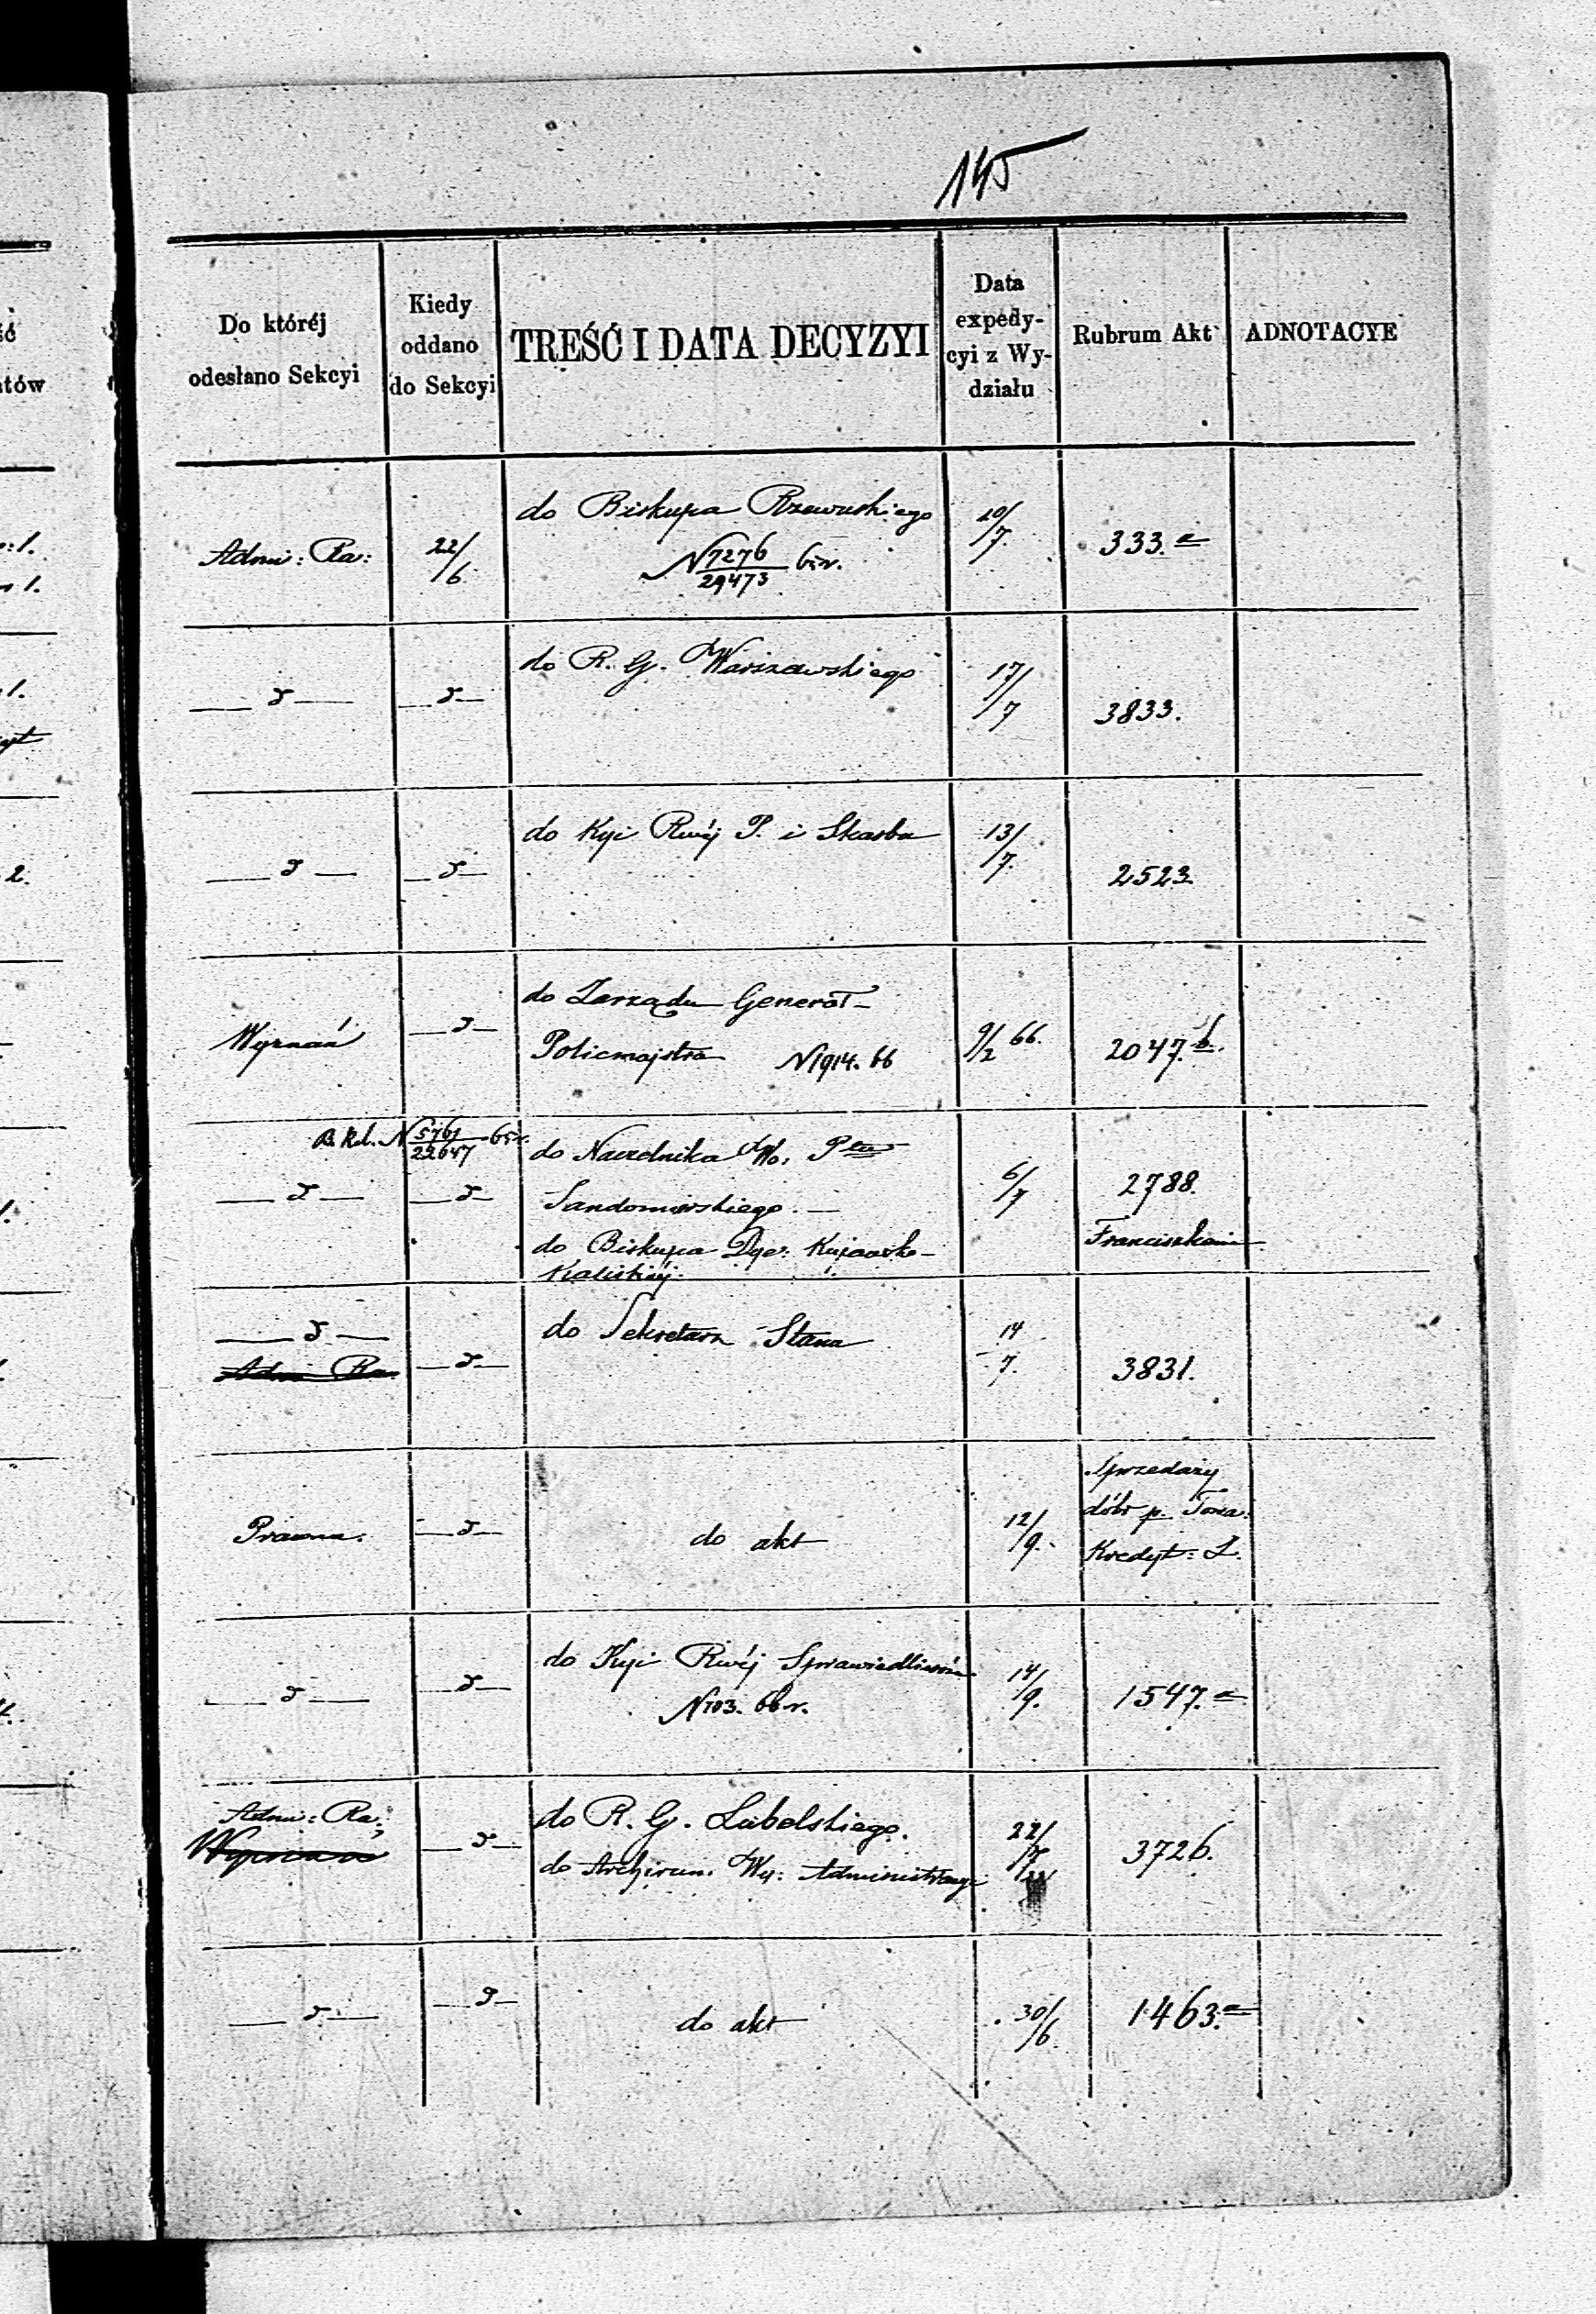 145
Do któréj
odesłano Sekcyi
Kiedy
oddano
do Sekcyi
TREŚĆ I DATA DECYZYI
Data
expedy-
cyi z Wy-
działu
Rubrum Akt
ADNOTACYE
Admi: Ra:
22/6
do Biskupa Rzewuskiego
N 7276/29473 65 r.
20/7.
333. a
d
d
do R. G. Warszawskiego
17/7
3833.
d
d
do Kyi Rwéj P. i Skarbu
13/7.
2523.
Wyznań
d
do Zarządu Generał-
Policmajstra N 1914. 66
9/2 66.
2047. b.
N 5761/22647 65 r.
d
d
do Naczelnika Wo.
Sandomierskiego.
do Biskupa Dye: Kujawsko-
Kaliskiéj.
6/7
2788.
Franciszkanie
d
Admi Ra.
d
do Sekretarza Stanu
14
7.
3831.
Prawna.
d
do akt
12/9.
Sprzedaży
dóbr p. Towa:
Kredyt: Z.
d
d
do Kyi Rwéj Sprawiedliwości
N 103. 66 r.
14/9.
1547. a
Admi: Ra:
d
do R. G. Lubelskiego.
do Archiwum Wy: Administracyi
22/7
3726.
d
d
do akt
30/6.
1463. a
ść
tów